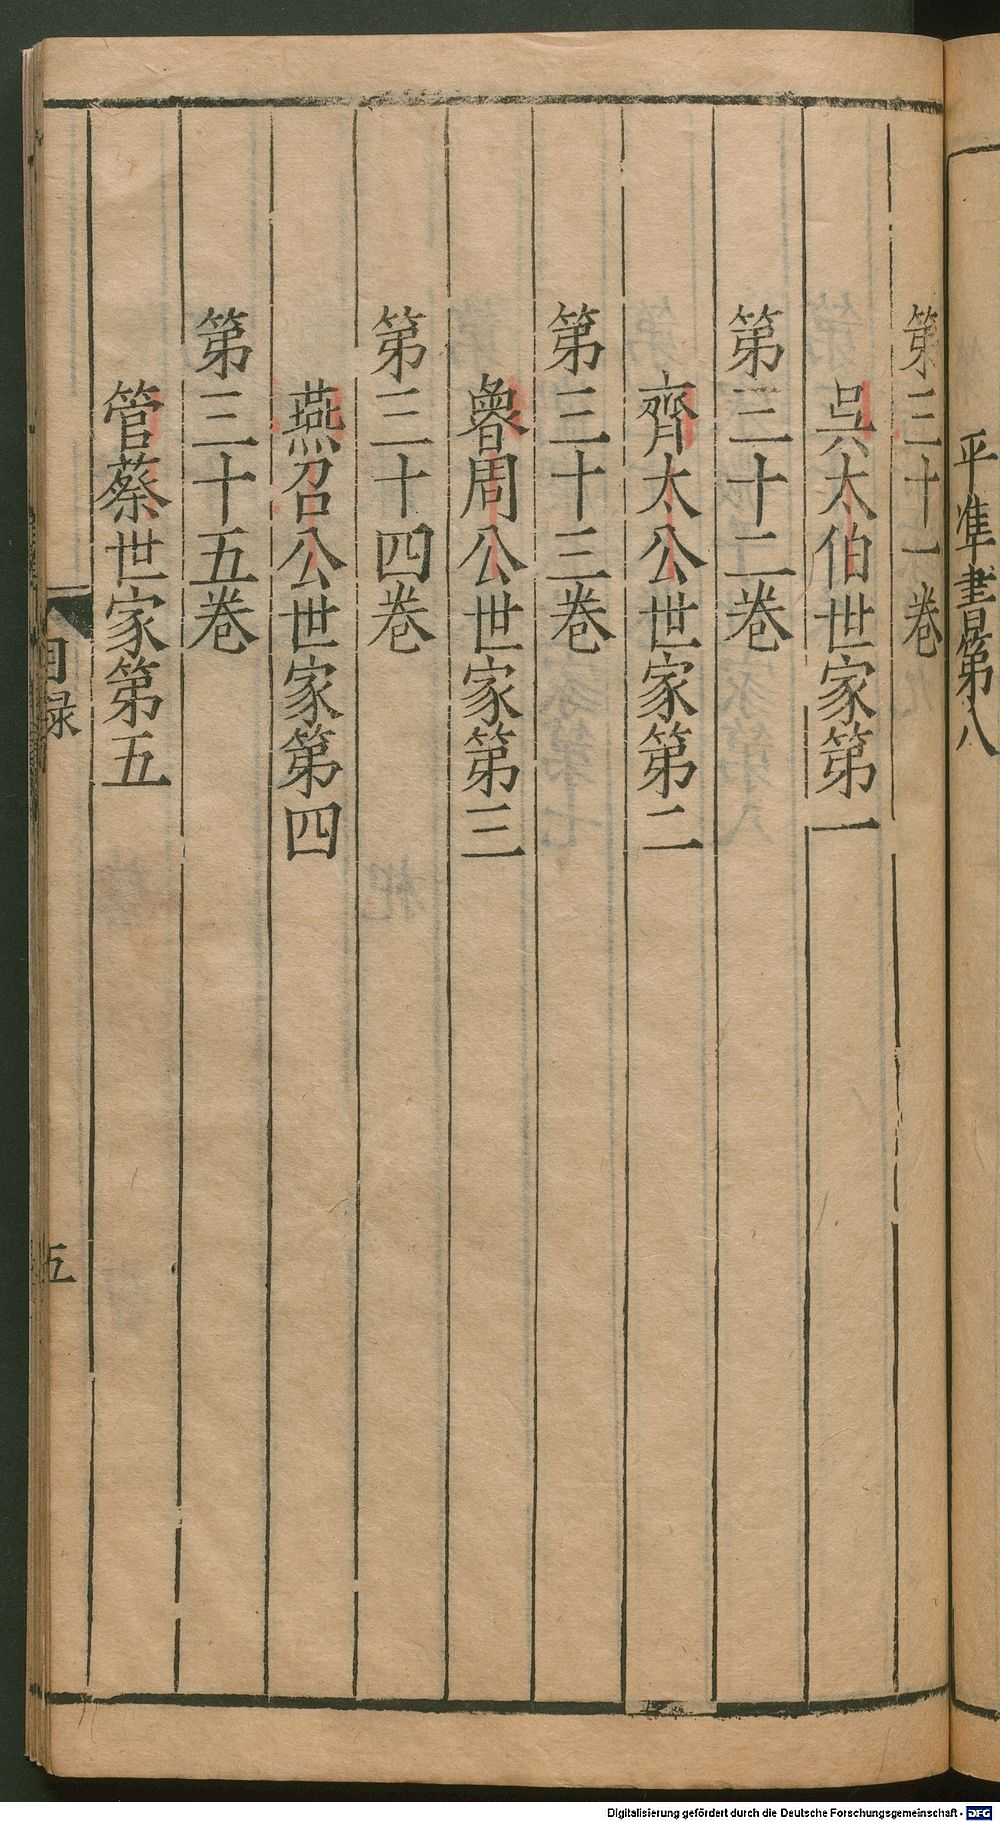 平準書第八
第三十一卷
吳太伯世家第一
第三十二卷
齊太公世家第二
第三十三卷
魯周公世家第三
第三十四卷
燕召公世家第四
第三十五卷
管蔡世家第五
目録
五
Digitalisierung gefördert durch die Deutsche Forschungsgemeinschaft - DFG